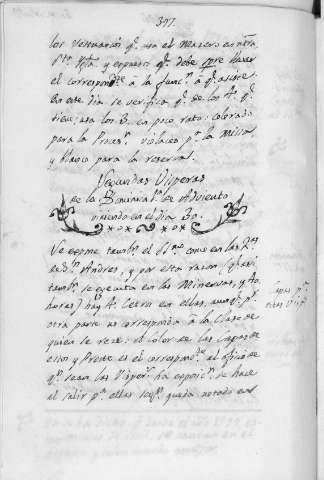 377.
los Vestuarios q.e usa el Mazero en ntra.
Sta. Yg.a, y expuesto q.e debe spre hacer
el correspond.te à la func.n à q.e asiste.
En este dia se verifica q.e de los A. q.e
tiene, usa los 3. en poco rato: colorado
para la Proces.n violaceo p.a la Missa
y blanco para la reserva.
Segundas Visperas
de la Domin.ca 1.a de Adviento
viniendo en el dia 30.
Se expone tamb.n el SSmo. como en las
de S.n Andres, y por esta razon (q.e assi
tamb.n se executa en las Minervas, y 40
horas) hay A. Cetro en ellas, aunq.e p.r
otra parte no corresponda à la Clase de
quien se reze: el color de las Capas de
estos y Preste es el correspond.te al oficio de
q.e sean las Visper.s: la exposic.n se hace
al salir p.a ellas seg.n queda notado en